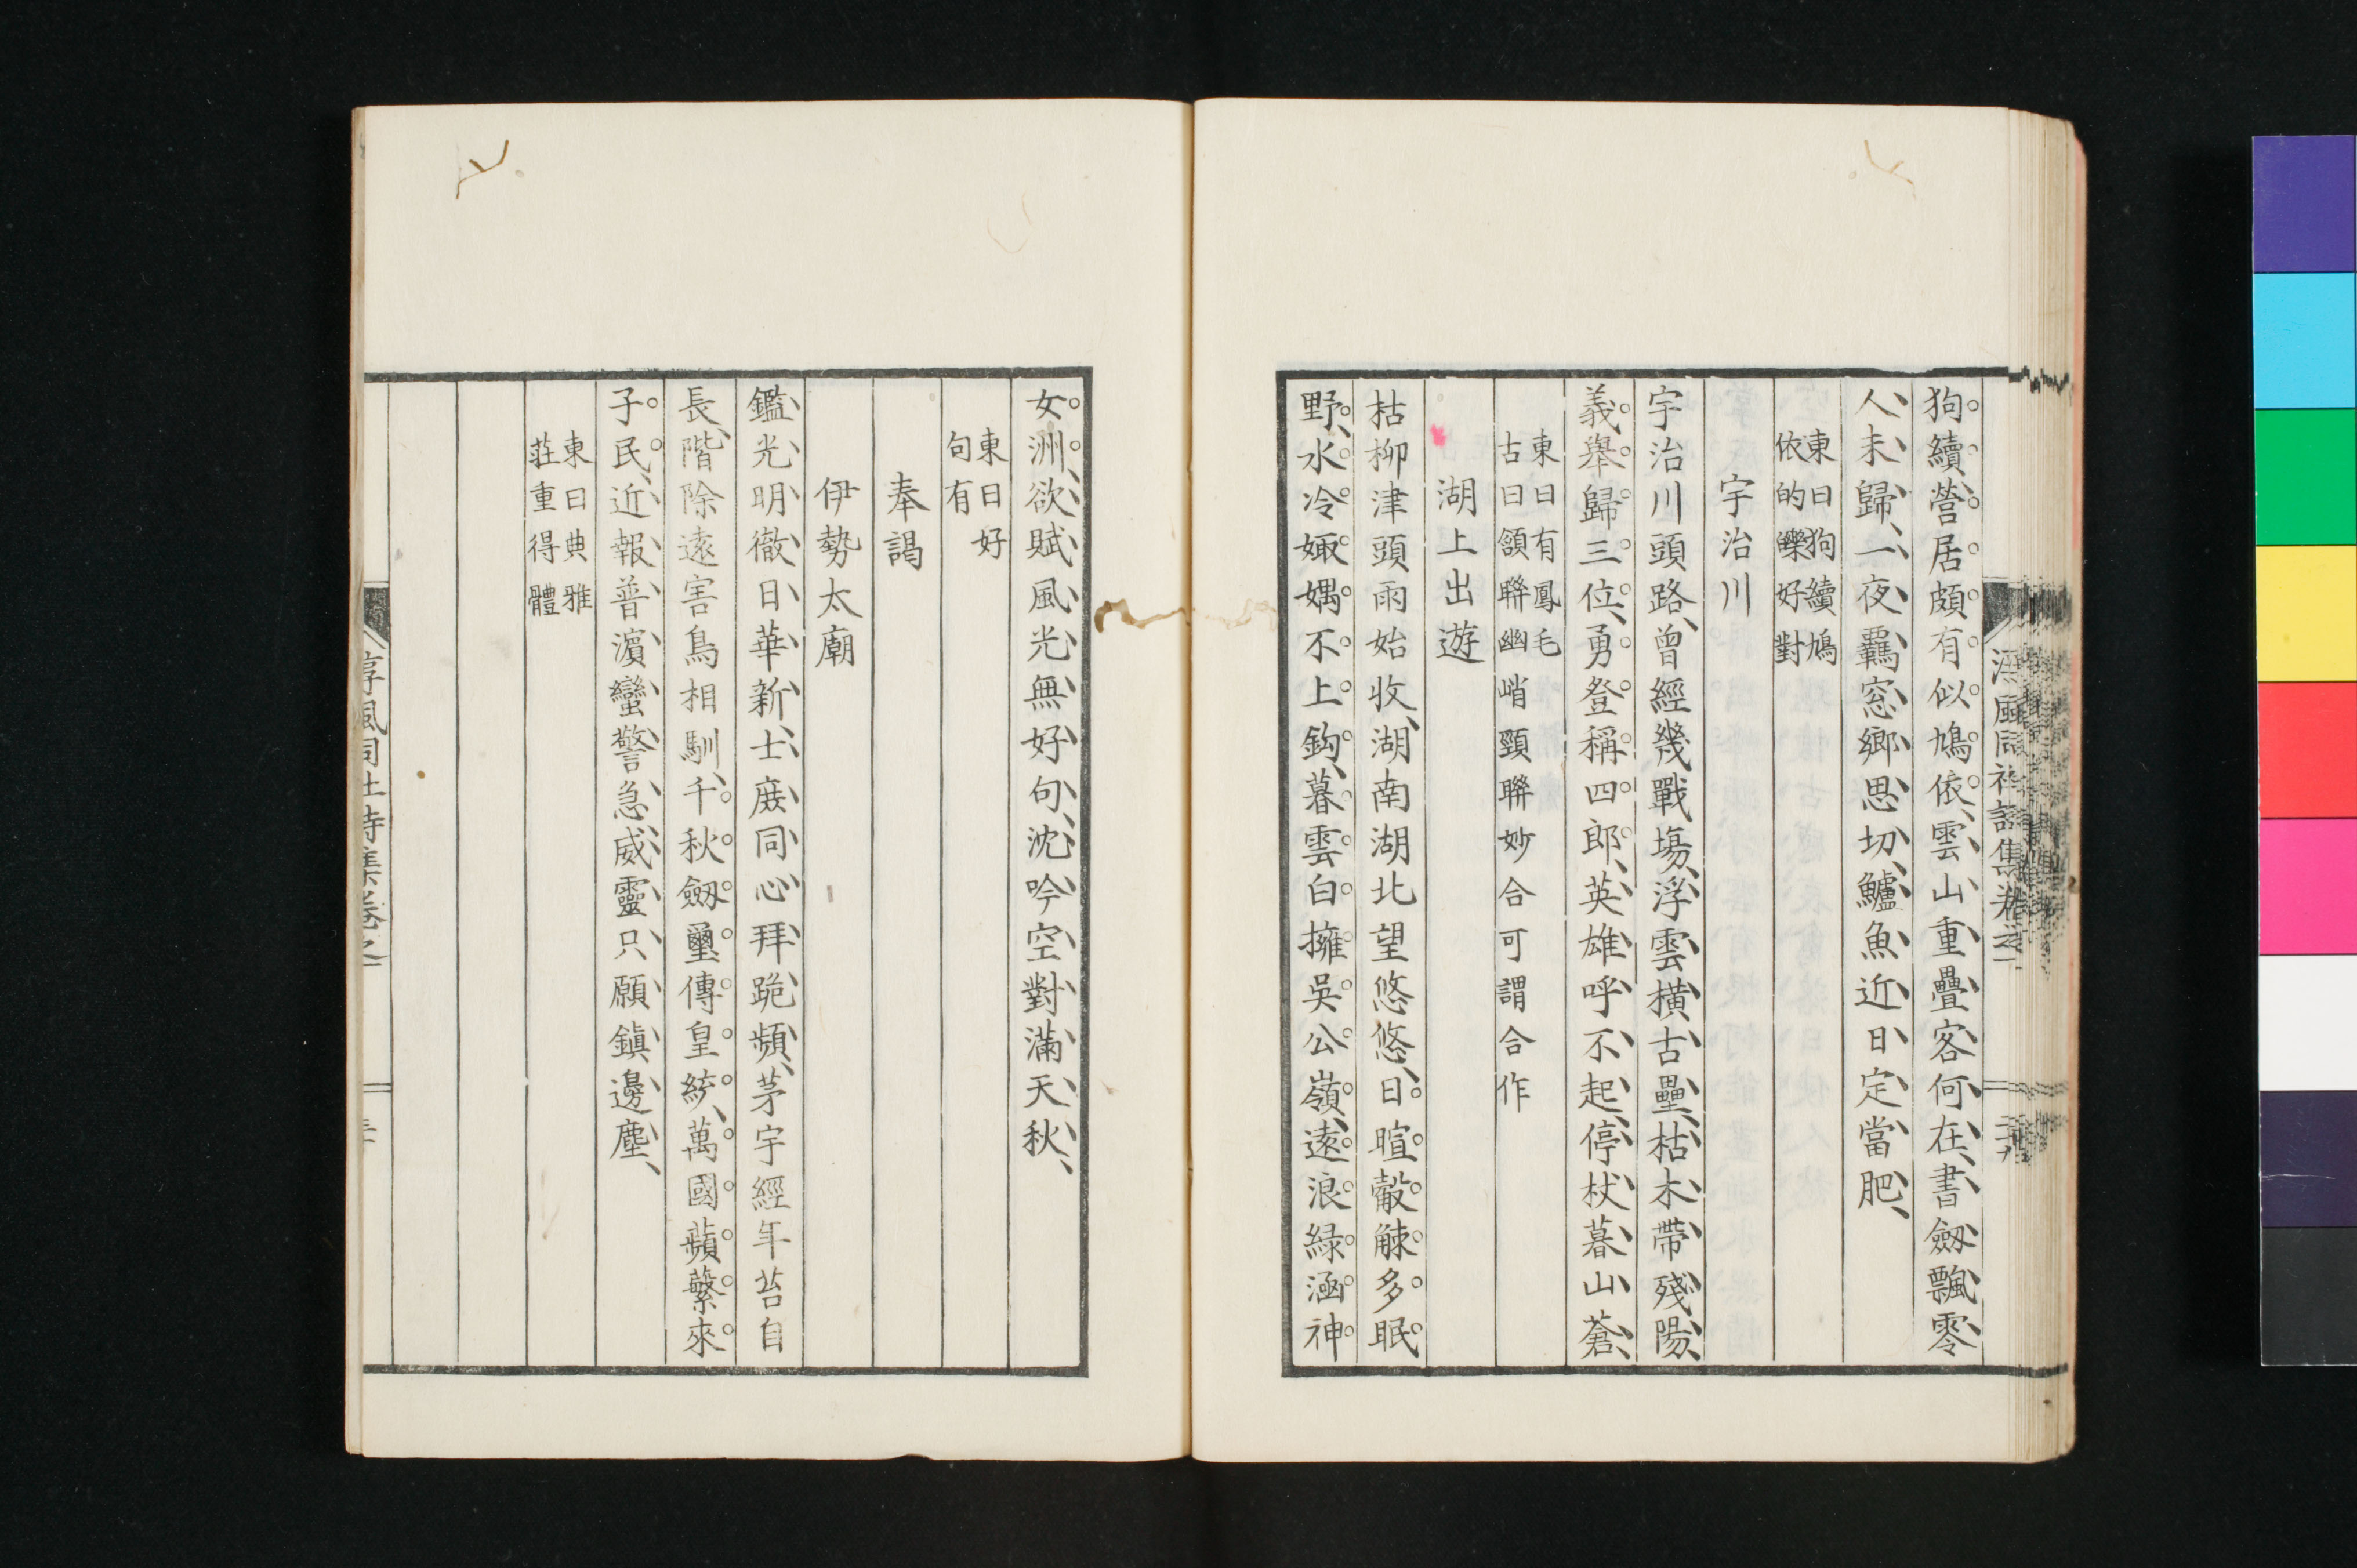 狗續營居頗有似鳩依雲山重疊客何在書劔飄零
人未歸一夜羈窓鄉思切鱸魚近日定當肥
東曰狗續鳩
依的皪好對
宇治川
宇治川頭路曾經幾戰場浮雲橫古壘枯木帶殘陽
義舉歸三位勇登稱四郎英雄呼不起停杖暮山蒼
東曰有鳳毛
古曰頷聯幽峭頸聯妙合可謂合作
湖上出遊
枯柳津頭雨始收湖南湖北望悠悠日暄觳觫多眠
野水冷娵嵎不上鈎暮雲白擁吳公嶺遠浪綠涵神
女洲欲賦風光無好句沈吟空對滿天秋
東曰好
句有
奉謁
伊勢太廟
鑑光明徹日華新士庶同心拜跪頻茅宇經年苔自
長階除遠害鳥相馴千秋劔璽傳皇統萬國蘋蘩來
子民近報普濵蠻警急威靈只願鎮邊塵
東曰典雅
莊重得體
淳風同社詩集卷之一